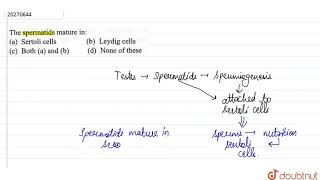 20270644
The spermatids mature in:
(a) Sertoli cells (b) Leydig cells
(c) Both (a) and (b) (d) None of these
Testes → Spermatids → Spermiogenesis
attached to
sertoli cells
Spermatids mature in
sperms → nutrition
sertoli
cells
doubtnut